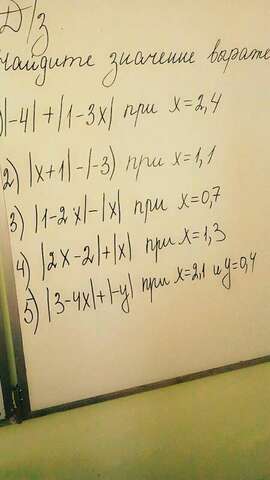 Д/з
Найдите значение выраже
1) |-4| + |1-3x| при x=2,4
2) |x+1|-|-3) при x=1,1
3) |1-2x|-|x| при x=0,7
4) |2x-2|+|x| при x=1,3
5) |3-4x|+|-y| при x=2,1 и y=0,4